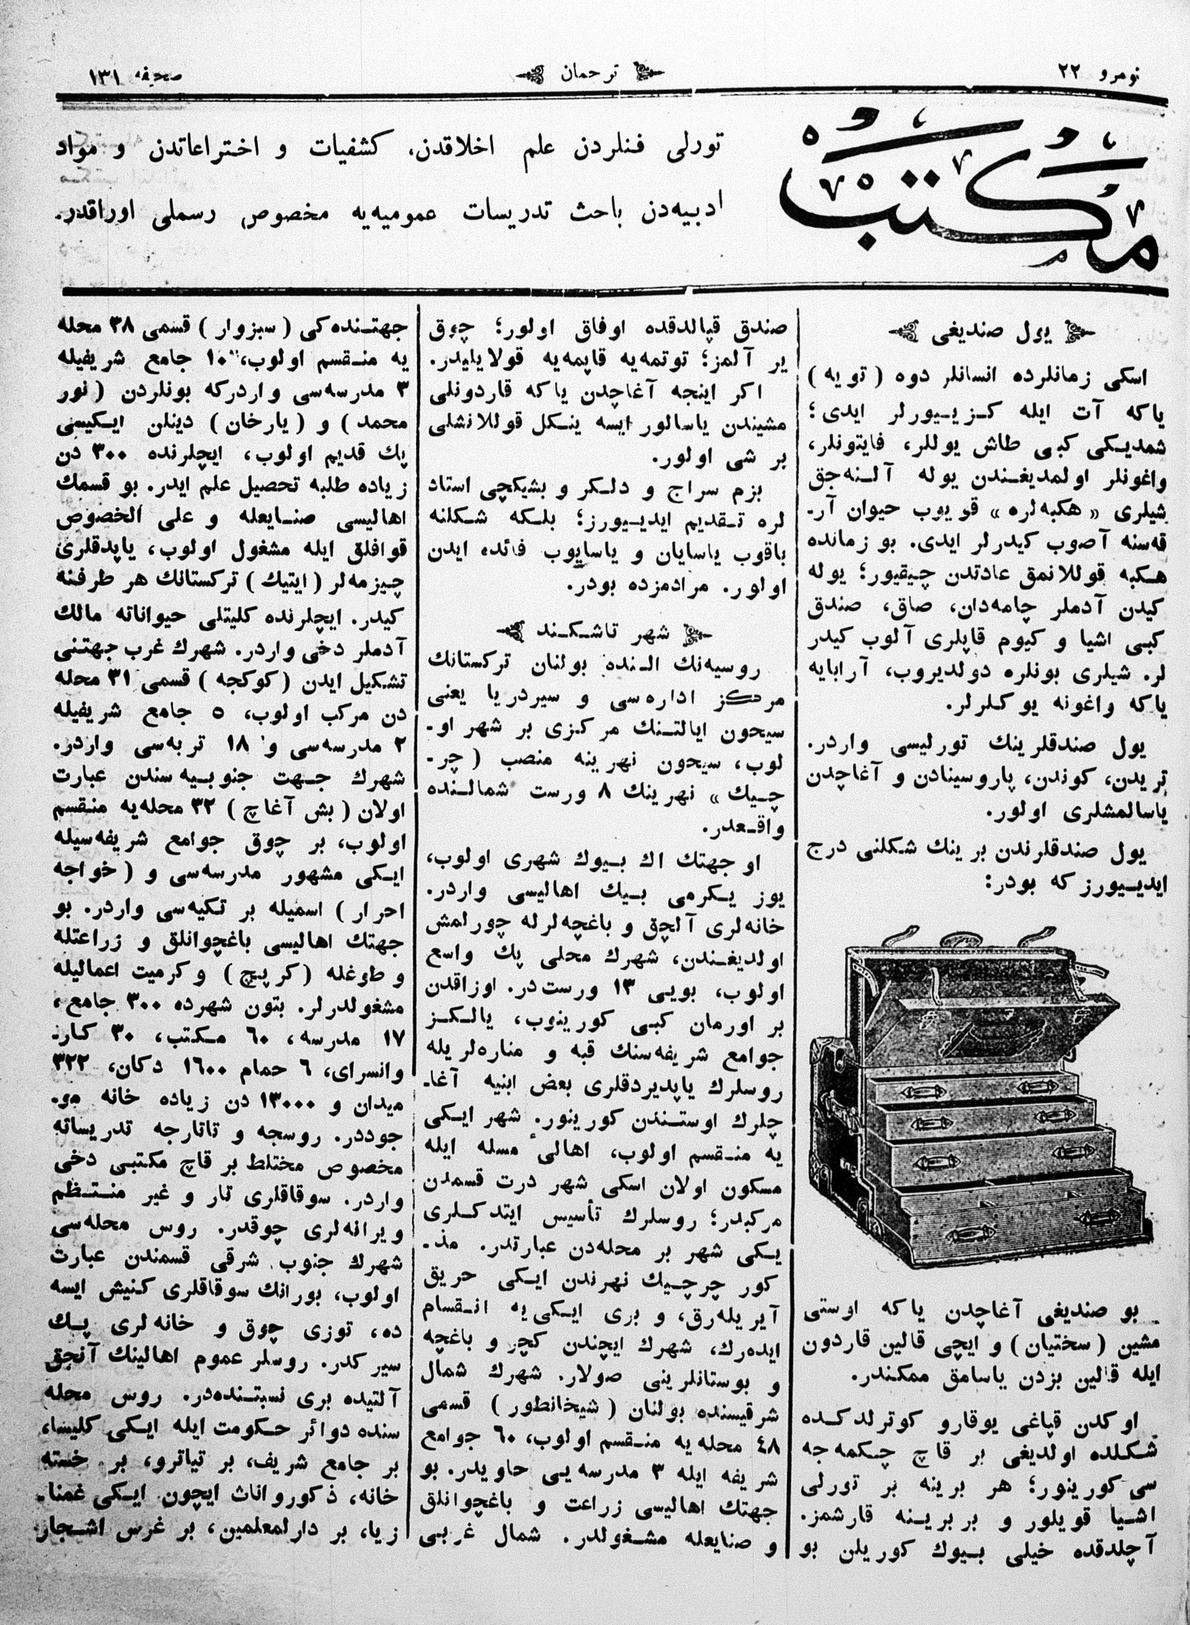 نومرو ٢٢
ترجمان
صحیفه ١٣١
مكتب
تورلی فنلردن علم اخلاقدن، كشفیات و اختراعاتدن و مواد
ادبیه‌دن باحث تدریسات عمومیه‌یه مخصوص رسملی اوراقدر.
یول صندیغی
اسكی زمانلرده انسانلر دوه (تویه)
یاكه آت ایله كزییورلر ایدی؛
شمدیكی كبی طاش یوللر، فایتونلر،
واغونلر اولمدیغندن یوله آلنه‌جق
شیلری «هكبه‌لره» قویوب حیوان آر-
قه‌سنه آصوب كیدرلر ایدی. بو زمانده
هكبه قوللانمق عادتدن چیقیور؛ یوله
كیدن آدملر چامه‌دان، صاق، صندق
كبی اشیا و كیوم قاپلری آلوب كیدر
لر. شیلری بونلره دولدیروب، آرابایه
یاكه واغونه یوكلرلر.
یول صندقلرینك تورلیسی واردر.
تریدن، كوندن، پاروسینادن و آغاچدن
یاسالمشلری اولور.
یول صندقلرندن برینك شكلنی درج
ایدییورز كه بودر:
بو صندیغی آغاچدن یاكه اوستی
مشین (سختیان) و ایچی قالین قاردون
ایله قالین بزدن یاسامق ممكندر.
اوكدن قپاغی یوقارو كوترلدكده
شكلده اولدیغی بر قاچ چكمه‌جه
سی كورینور؛ هر برینه بر تورلی
اشیا قویلور و بربرینه قارشمز.
آچلدقده خیلی بیوك كوریلن بو
صندق قپالدقده اوفاق اولور؛ چوق
یر آلمز؛ توتمه‌یه قاپمه‌یه قولایلیدر.
اكر اینجه آغاچدن یاكه قاردونلی
مشیندن یاسالور ایسه ینكل قوللانشلی
بر شی اولور.
بزم سراج و دلكر و بشیكچی استاد
لره تقدیم ایدییورز؛ بلكه شكلنه
باقوب یاسایان و یاسایوب فائده ایدن
اولور. مرادمزده بودر.
شهر تاشكند
روسیه‌نك النده بولنان تركستانك
مركز اداره‌سی و سیردریا یعنی
سیحون ایالتنك مركزی بر شهر او-
لوب، سیحون نهرینه منصب (چر-
چیك» نهرینك ٨ ورست شمالنده
واقعدر.
او جهتك اك بیوك شهری اولوب،
یوز یكرمی بیك اهالیسی واردر.
خانه‌لری آلچق و باغچه‌لرله چورلمش
اولدیغندن، شهرك محلی پك واسع
اولوب، بویی ١٣ ورست‌در. اوزاقدن
بر اورمان كبی كورینوب، یالكز
جوامع شریفه‌سنك قبه و مناره‌لریله
روسلرك یاپدیردقلری بعض ابنیه آغا-
چلرك اوستندن كورینور. شهر ایكی
یه منقسم اولوب، اهالیٔ مسله ایله
مسكون اولان اسكی شهر درت قسمدن
مركبدر؛ روسلرك تأسیس ایتدكلری
یكی شهر بر محله‌دن عبارتدر. مذ-
كور چرچیك نهرندن ایكی حریق
آیریله‌رق، و بری ایكی‌یه انقسام
ایده‌رك، شهرك ایچندن كچر و باغچه
و بوستانلرینی صولار. شهرك شمال
شرقیسنده بولنان (شیخانطور) قسمی
٤٨ محله‌یه منقسم اولوب، ٦٠ جوامع
شریفه ایله ٣ مدرسه‌یی حاویدر. بو
جهتك اهالیسی زراعت و باغچوانلق
و صنایعله مشغولدر. شمال غربی
جهتنده‌كی (سبزوار) قسمی ٣٨ محله
یه منقسم اولوب، ١٠ جامع شریفیله
٣ مدرسه‌سی واردركه بونلردن (نور
محمد) و (یارخان) دینلن ایكیسی
پك قدیم اولوب، ایچلرنده ٣٠٠ دن
زیاده طلبه تحصیل علم ایدر. بو قسمك
اهالیسی صنایعله و علی الخصوص
قوافلق ایله مشغول اولوب، یاپدقلری
چیزمه‌لر (ایتیك) تركستانك هر طرفنه
كیدر. ایچلرنده كلیتلی حیواناته مالك
آدملر دخی واردر. شهرك غرب جهتنی
تشكیل ایدن (كوكجه) قسمی ٣١ محله
دن مركب اولوب، ٥ جامع شریفیله
٢ مدرسه‌سی و ١٨ تربه‌سی واردر.
شهرك جهت جنوبیه‌سندن عبارت
اولان (بش آغاچ) ٣٢ محله‌یه منقسم
اولوب، بر چوق جوامع شریفه‌سیله
ایكی مشهور مدرسه‌سی و (خواجه
احرار) اسمیله بر تكیه‌سی واردر. بو
جهتك اهالیسی باغچوانلق و زراعتله
و طوغله (كرپچ) و كرمیت اعمالیله
مشغولدرلر. بتون شهرده ٣٠٠ جامع،
١٧ مدرسه، ٦٠ مكتب، ٣٠ كار-
وانسرای، ٦ حمام ١٦٠٠ دكان، ٣٢٢
میدان و ١٣٠٠٠ دن زیاده خانه مو-
جوددر. روسجه و تاتارجه تدریساته
مخصوص مختلط بر قاچ مكتبی دخی
واردر. سوقاقلری تار و غیر منتظم
ویرانه‌لری چوقدر. روس محله‌سی
شهرك جنوب شرقی قسمندن عبارت
اولوب، بورانك سوقاقلری كنیش ایسه
ده، توزی چوق و خانه‌لری پك
سیركدر. روسلر عموم اهالینك آنجق
آلتیده بری نسبتنده‌در. روس محله
سنده دوائر حكومت ایله ایكی كلیسا،
بر جامع شریف، بر تیاترو، بر خسته
خانه، ذكور واناث ایچون ایكی غمنا-
زیا، بر دارلمعلمین، بر غرس اشجار